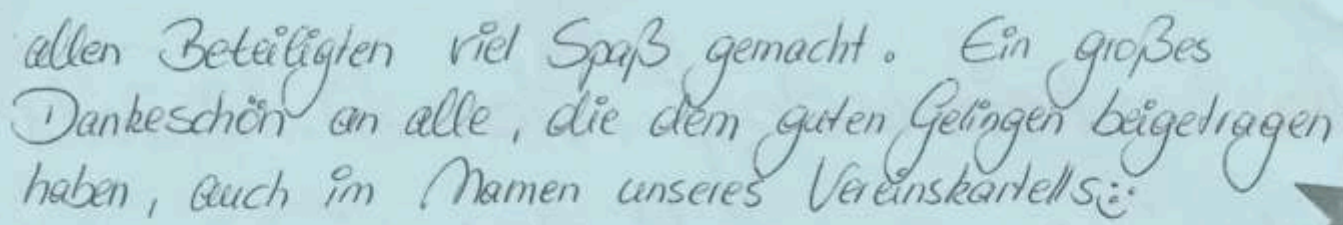 allen Beteiligten viel Spaß gemacht. Ein großes
Dankeschön an alle, die dem guten Gelingen beigetragen
haben, auch im Namen unseres Vereinskartells